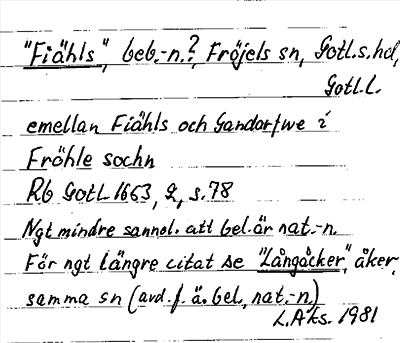 "Fiähls", beb.-n.?, Fröjels sn, Gotl.s.hd,
Gotl.l.
emellan Fiähls och Gandarfwe i
Fröhle sochn
Rb Gotl 1663, 2, s.78
Ngt mindre sannol. att bel. är nat.-n.
För ngt längre citat se "Långåcker", åker,
samma sn (avd. f. ä. bel., nat.-n.)
L.Aks. 1981